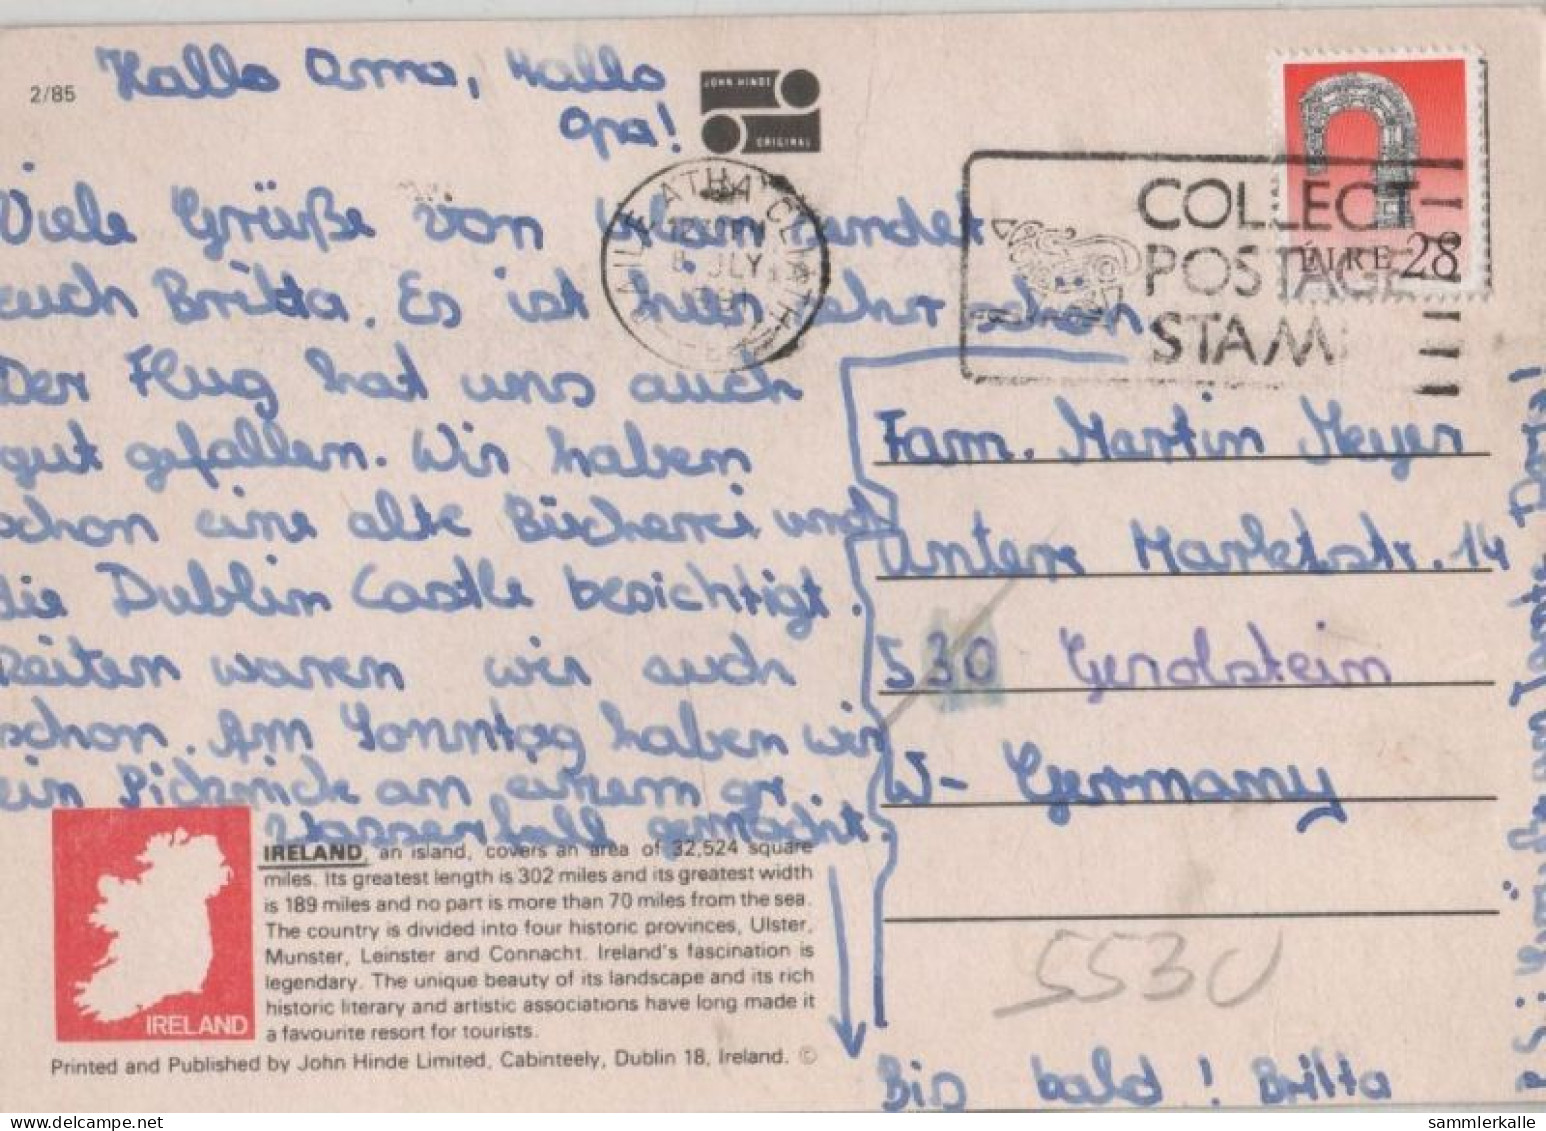 2/85
Hallo Oma, Hallo
Opa!
JOHN HINDE
ORIGINAL
Viele Grüße von sendet
euch Britta. Es ist hier sehr schön
Der Flug hat uns auch
gut gefallen. Wir haben
schon eine alte Bücherei und
die Dublin Castle besichtigt.
Reiten waren wir auch
schon. Am Sonntag haben wir
ein Picknick an einem gr
Wasserfall gemacht.
BAILE ÁTHA CLIATH
8 JLY
COLLECT
POSTAGE
STAM
ÉIRE 28
Fam. Martin Meyer
Untere Marktstr. 14
530 Gerolstein
W- Germany
5530
Bis bald! Britta
IRELAND, an island, covers an area of 32,524 square
miles. Its greatest length is 302 miles and its greatest width
is 189 miles and no part is more than 70 miles from the sea.
The country is divided into four historic provinces, Ulster,
Munster, Leinster and Connacht. Ireland's fascination is
legendary. The unique beauty of its landscape and its rich
historic literary and artistic associations have long made it
a favourite resort for tourists.
IRELAND
Printed and Published by John Hinde Limited, Cabinteely, Dublin 18, Ireland. ©
sammlerkalle